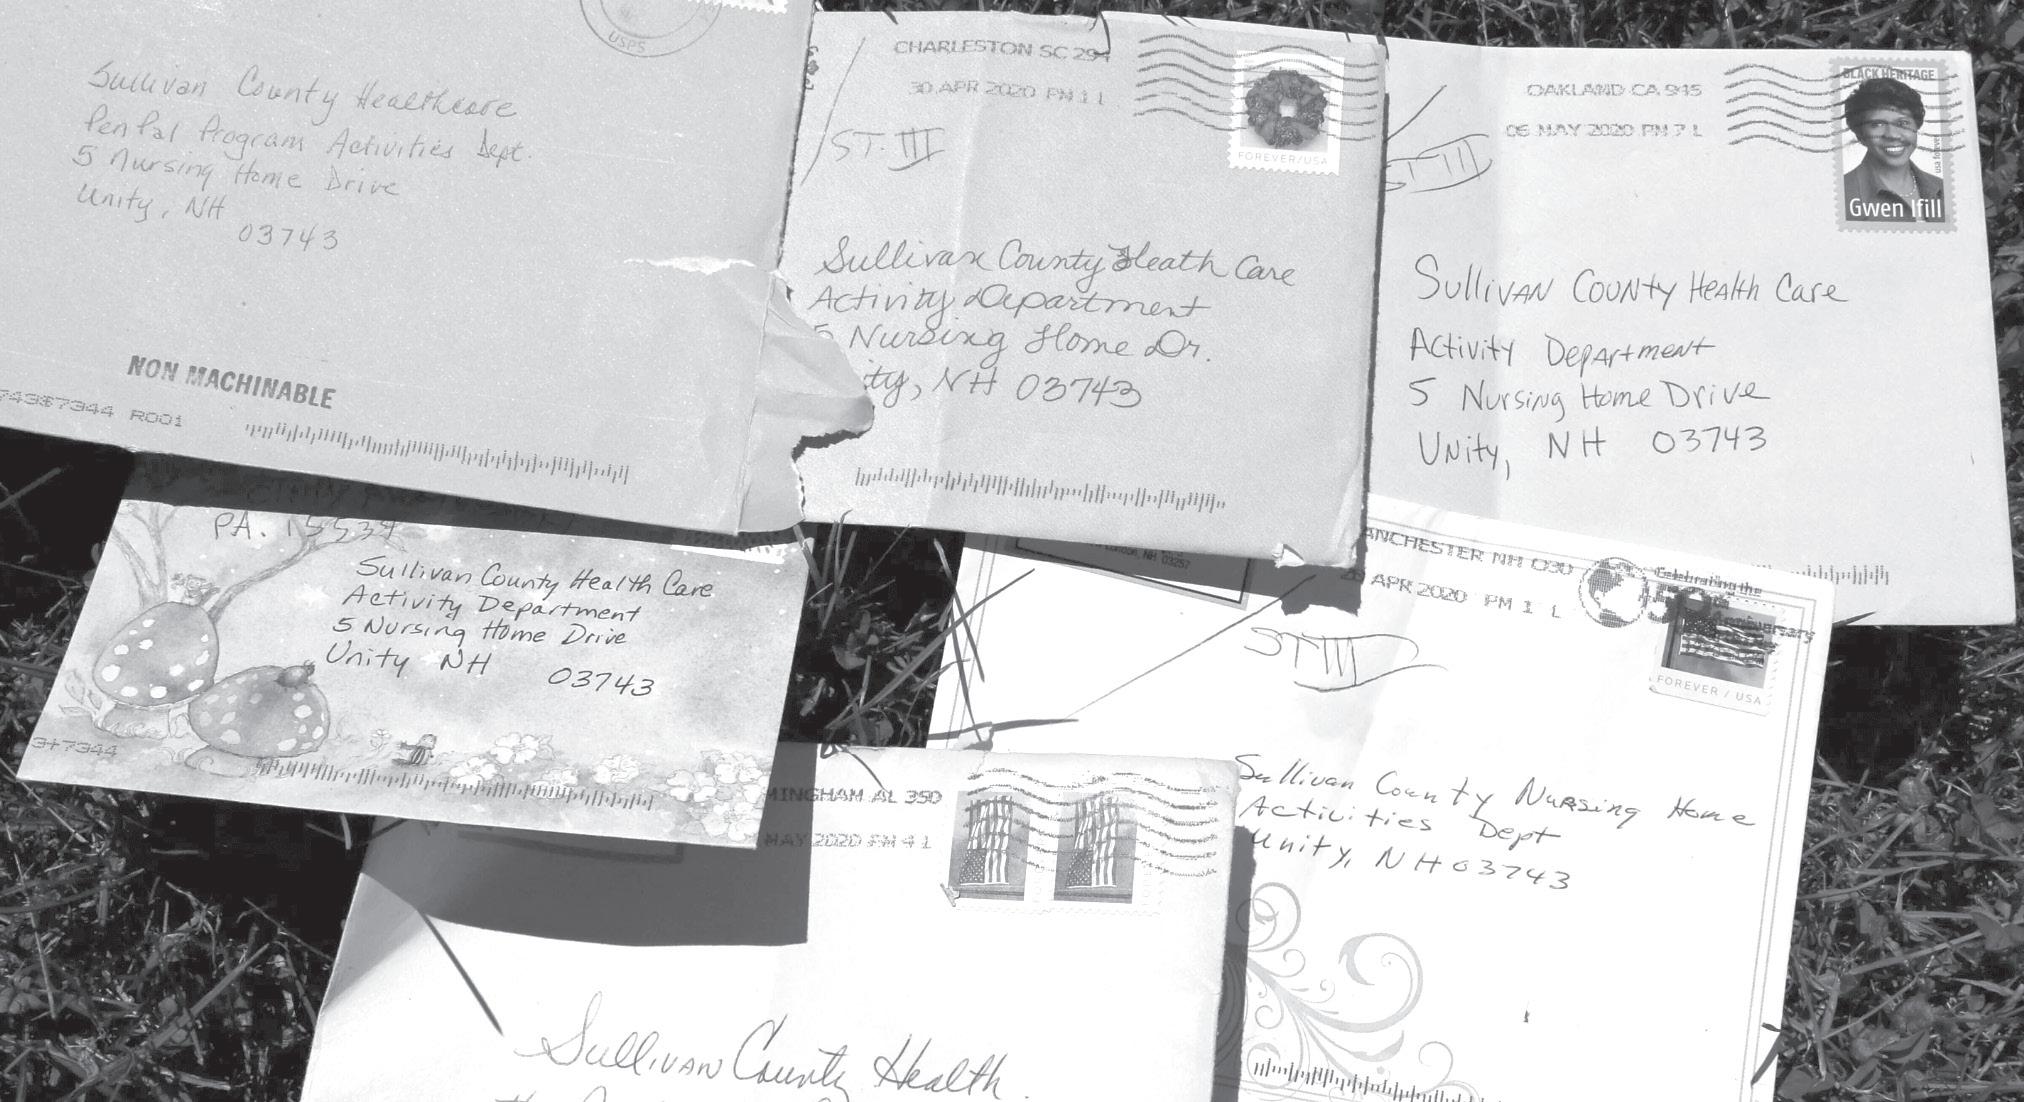 USPS
Sullivan County Healthcare
Pen Pal Program Activities Dept.
5 Nursing Home Drive
Unity, NH
03743
NON MACHINABLE
743$7344 R001
CHARLESTON SC 294
30 APR 2020 PM 1 L
ST. III
FOREVER/USA
Sullivan County Heath Care
Activity Department
5 Nursing Home Dr.
ity, NH 03743
OAKLAND CA 945
06 MAY 2020 PM 7 L
BLACK HERITAGE
usa forever
Gwen Ifill
Sullivan County Health Care
Activity Department
5 Nursing Home Drive
Unity, NH 03743
PA. 15534
Sullivan County Health Care
Activity Department
5 Nursing Home Drive
Unity NH
03743
3+7344
London, NH 03257
ANCHESTER NH 030
APR 2020 PM 1 L
Celebrating the
Anniversary
ST III
FOREVER / USA
Sullivan County Nursing Home
Activities Dept
Unity, NH 03743
MINGHAM AL 350
MAY 2020 PM 4 L
Sullivan County Health